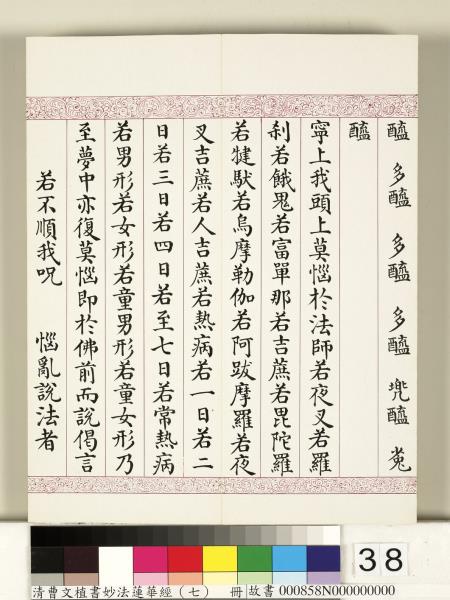 醯 多醯 多醯 多醯 兠醯 㝹
醯
寧上我頭上莫惱於法師若夜叉若羅
刹若餓鬼若富單那若吉蔗若毘陀羅
若犍馱若烏摩勒伽若阿跋摩羅若夜
叉吉蔗若人吉蔗若熱病若一日若二
日若三日若四日若至七日若常熱病
若男形若女形若童男形若童女形乃
至夢中亦復莫惱即於佛前而說偈言
若不順我呪 惱亂說法者
38
清曹文植書妙法蓮華經(七) 冊 故書 000858N000000000